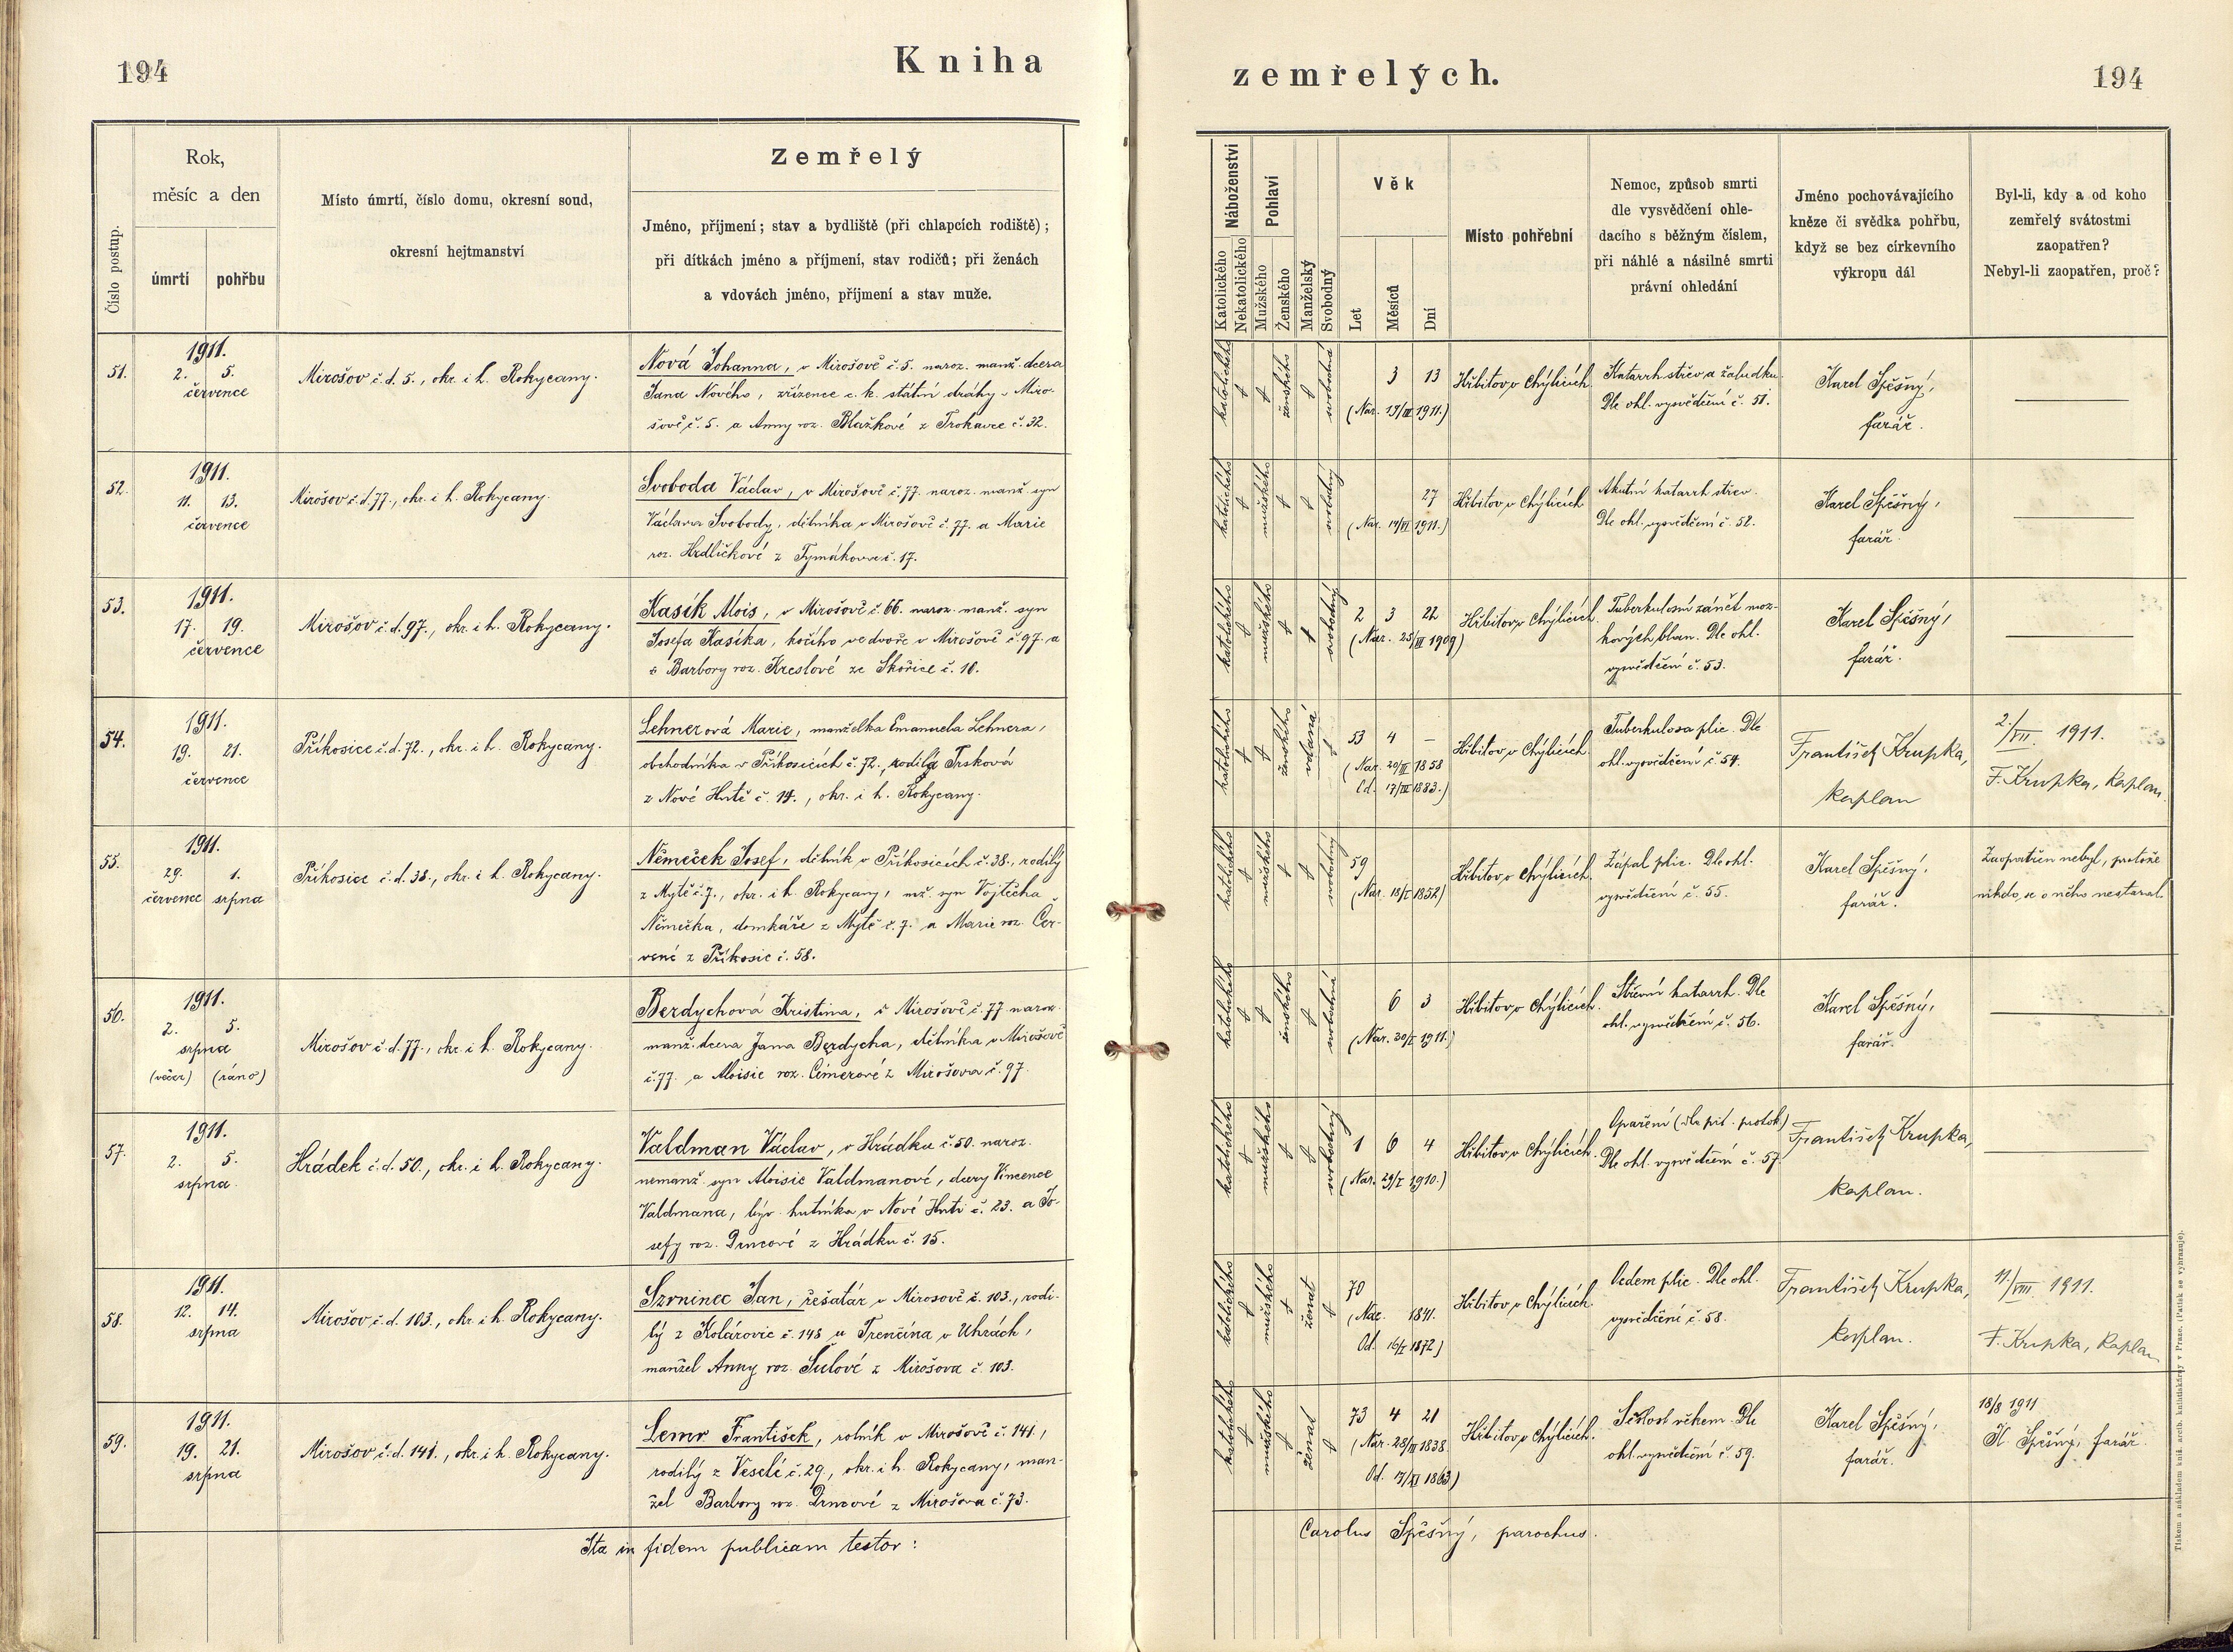 194
Kniha
zemřelých.
194
Číslo postup.
Rok,
měsíc a den
úmrtí
pohřbu
Místo úmrtí, číslo domu, okresní soud,
okresní hejtmanství
Zemřelý
Jméno, příjmení; stav a bydliště (při chlapcích rodiště);
při dítkách jméno a příjmení, stav rodičů; při ženách
a vdovách jméno, příjmení a stav muže.
Náboženství
Katolického
Nekatolického
Pohlaví
Mužského
Ženského
Manželský
Svobodný
Věk
Let
Měsíců
Dní
Místo pohřební
Nemoc, způsob smrti
dle vysvědčení ohle-
dacího s běžným číslem,
při náhlé a násilné smrti
právní ohledání
Jméno pochovávajícího
kněze či svědka pohřbu,
když se bez církevního
výkropu dál
Byl-li, kdy a od koho
zemřelý svátostmi
zaopatřen?
Nebyl-li zaopatřen, proč?
51.
1911.
2. 5.
července
Mirošov č. d. 5., okr. i h. Rokycany.
Nová Johanna, v Mirošově č. 5. naroz. manž. dcera
Jana Nového, zřízence c. k. státní dráhy v Miro-
šově č. 5. a Anny roz. Blažkové z Trokavce č. 32.
katolického
ženského
svobodná
3 13
(Nar. 19/III 1911.)
Hřbitov v Chýlicích.
Katarrh střev a žaludku.
Dle ohl. vysvědčení č. 51.
Karel Spěšný,
farář.
52.
1911.
11. 13.
července
Mirošov č. d. 77., okr. i h. Rokycany.
Svoboda Václav, v Mirošově č. 77. naroz. manž. syn
Václava Svobody, dělníka v Mirošově č. 77. a Marie
roz. Hrdličkové z Tymákova č. 17.
katolického
mužského
svobodný
27
(Nar. 14/VI 1911.)
Hřbitov v Chýlicích
Akutní katarrh střev.
Dle ohl. vysvědčení č. 52.
Karel Spěšný,
farář.
53.
1911.
17. 19.
července
Mirošov č. d. 97., okr. i h. Rokycany.
Kasík Alois, v Mirošově č. 66. naroz. manž. syn
Josefa Kasíka, kočího ve dvoře v Mirošově č. 97. a
Barbory roz. Kreslové ze Skořice č. 10.
katolického
mužského
svobodný
2 3 22
(Nar. 25/III 1909)
Hřbitov v Chýlicích.
Tuberkulosní zánět moz-
kových blan. Dle ohl.
vysvědčení č. 53.
Karel Spěšný,
farář.
54.
1911.
19. 21.
července
Příkosice č. d. 72., okr. i h. Rokycany.
Lehnerová Marie, manželka Emanuela Lehnera,
obchodníka v Příkosicích č. 72., rodilá Trsková
z Nové Hutě č. 14., okr. i h. Rokycany.
katolického
ženského
vdaná
53 4 –
(Nar. 20/III 1858
Od. 17/IV 1883.)
Hřbitov v Chýlicích.
Tuberkulosa plic. Dle
ohl. vysvědčení č. 54.
František Krupka,
kaplan
2./VII. 1911.
F. Krupka, kaplan.
55.
1911.
29. 1.
července srpna
Příkosice č. d. 38., okr. i h. Rokycany.
Němeček Josef, dělník v Příkosicích č. 38., rodilý
z Mýtě č. 7., okr. i h. Rokycany, mž. syn Vojtěcha
Němečka, domkáře z Mýtě č. 7. a Marie roz. Čer-
vené z Příkosic č. 58.
katolického
mužského
svobodný
59
(Nar. 18/I 1852)
Hřbitov v Chýlicích.
Zápal plic. Dle ohl.
vysvědčení č. 55.
Karel Spěšný,
farář.
Zaopatřen nebyl, protože
nikdo se o něho nestaral.
56.
1911.
2. 5.
srpna
(večer) (ráno)
Mirošov č. d. 77., okr. i h. Rokycany.
Berdychová Kristina, v Mirošově č. 77 naroz.
manž. dcera Jana Berdycha, dělníka v Mirošově
č. 77. a Aloisie roz. Cimerové z Mirošova č. 97.
katolického
ženského
svobodná
6 3
(Nar. 30/I 1911.)
Hřbitov v Chýlicích.
Střevní katarrh. Dle
ohl. vysvědčení č. 56.
Karel Spěšný,
farář.
57.
1911.
2. 5.
srpna
Hrádek č. d. 50., okr. i h. Rokycany.
Valdman Václav, v Hrádku č. 50. naroz.
nemanž. syn Aloisie Valdmanové, dcery Vincence
Valdmana, býv. hutníka v Nové Huti č. 23. a Jo-
sefy roz. Drncové z Hrádku č. 15.
katolického
mužského
svobodný
1 6 4
(Nar. 29/I 1910.)
Hřbitov v Chýlicích.
Opaření (dle pit. protok.)
Dle ohl. vysvědčení č. 57.
František Krupka,
kaplan.
58.
1911.
12. 14.
srpna
Mirošov č. d. 103., okr. i h. Rokycany.
Szvninec Jan, řešatár v Mirosově č. 103., rodi-
lý z Kolárovic č. 148 u Trenčína v Uhrách,
manžel Anny roz. Šulové z Mirošova č. 103.
katolického
mužského
ženat
70
(Nar. 1841.
Od. 16/I 1872)
Hřbitov v Chýlicích.
Oedem plic. Dle ohl.
vysvědčení č. 58.
František Krupka,
kaplan.
11./VIII. 1911.
F. Krupka, kaplan
59.
1911.
19. 21.
srpna
Mirošov č. d. 141., okr. i h. Rokycany.
Lemr František, rolník v Mirošově č. 141.,
rodilý z Veselé č. 29., okr. i h. Rokycany, man-
žel Barbory roz. Drncové z Mirošova č. 73.
katolického
mužského
ženat
73 4 21
(Nar. 28/III 1838.
Od. 17/XI 1863)
Hřbitov v Chýlicích.
Sešlost věkem. Dle
ohl. vysvědčení č. 59.
Karel Spěšný,
farář.
18/8 1911
K. Spěšný, farář.
Ita in fidem publicam testor:
Carolus Spěšný, parochus.
Tiskem a nákladem kníž. arcib. knihtiskárny v Praze. (Patisk se vyhrazuje).